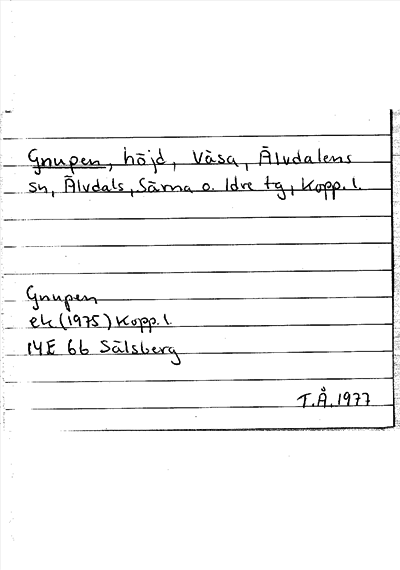 Gnupen, höjd, Våsa, Älvdalens
sn, Älvdals, Särna o. Idre tg, Kopp. l.
Gnupen
ek (1975) Kopp. l.
14E 6b Sälsberg
T.Å. 1977